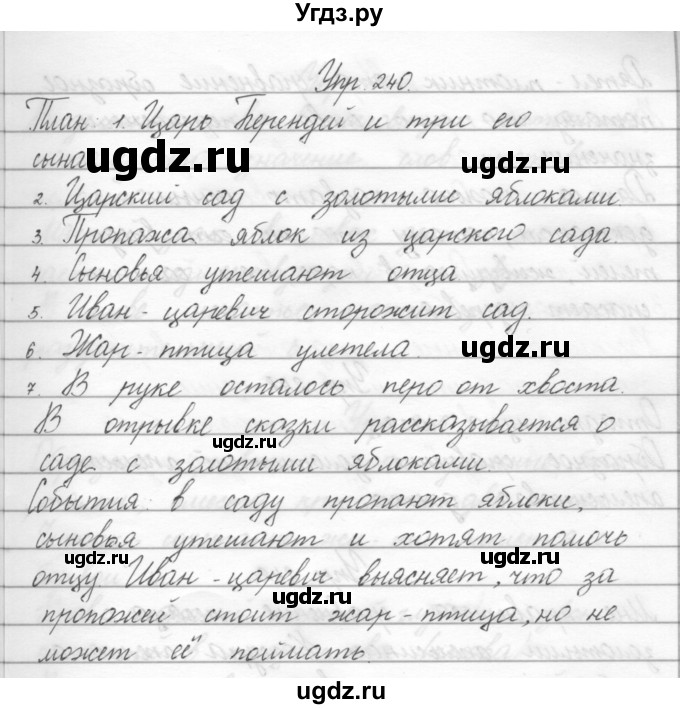 Угдз.ру
Упр. 240.
План 1. Царь Берендей и три его
сына
ugdz.ru
ugdz.ru
2. Царский сад с золотыми яблоками.
3. Пропажа яблок из царского сада.
4. Сыновья утешают отца
5. Иван-царевич сторожит сад.
6. Жар-птица улетела.
ugdz.ru
7. В руке осталось перо от хвоста.
В отрывке сказки рассказывается о
ugdz.ru
саде с золотыми яблоками.
События: в саду пропают яблоки,
сыновья утешают и хотят помочь
ugdz.ru
ugdz.ru
отцу Иван-царевич выясняет, что за
ugdz.ru
пропожей стоит жар-птица, но не
может её поймать.
ugdz.ru